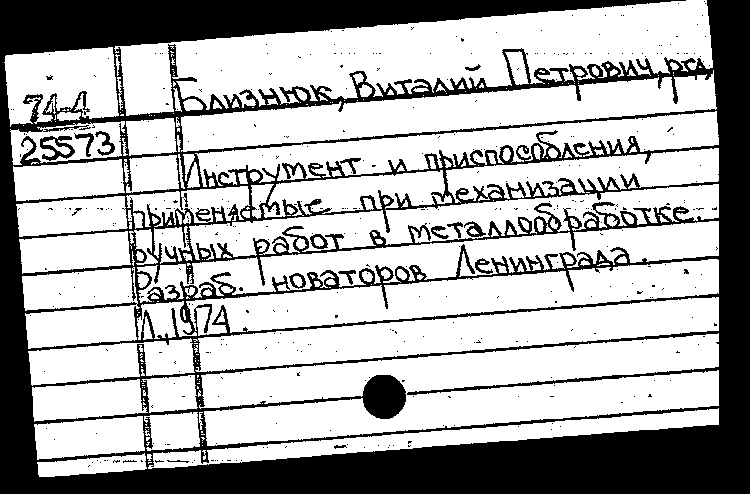 Близнюк, Виталий Петрович, ред.
74-4
25573
Инструмент и приспособления,
применяемые при механизации
ручных работ в металлообработке.
Разраб. новаторов Ленинграда.
Л., 1974.